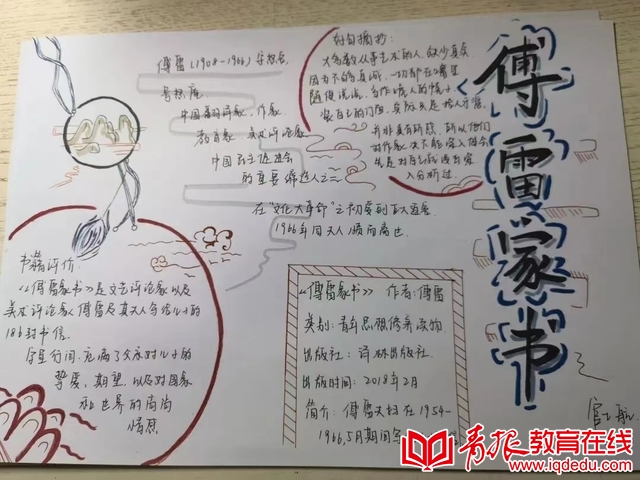 傅雷家书
傅雷(1908-1966)字怒安,
号怒庵
中国翻译家、作家
教育家 美术评论家
中国民主促进会
的重要缔造人之一
在"文化大革命"之初受到
1966年同夫人
好句摘抄:
大多数从事艺术的人,缺少真实
因为不够真诚,一切都在嘴里
随便说说,当作唬人的幌子
装自己的门面,实际只是拾人牙慧
并非真有所感,所以他们
对作家决不能深入体会
先是对自己就没有深
入分析过.
书籍评价:
《傅雷家书》是文艺评论家以及
美术评论家傅雷及其夫人写给儿子的
186封书信.
字里行间,充满了父亲对儿子的
挚爱,期望,以及对国家
和世界的高尚
情感
《傅雷家书》 作者:傅雷
类别:青年思想修养读物
出版社:译林出版社.
出版时间:2018年2月
简介:傅雷夫妇在1954-
1966,5月期间写
青报教育在线
www.iqdedu.com